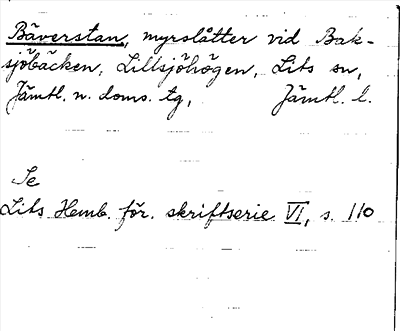 Bäverstan, myrslåtter vid Bak-
sjöbäcken, Lillsjöhögen, Lits sn,
Jämtl. n. doms. tg, Jämtl. l.
Se
Lits Hemb. för. skriftserie VI, s. 110